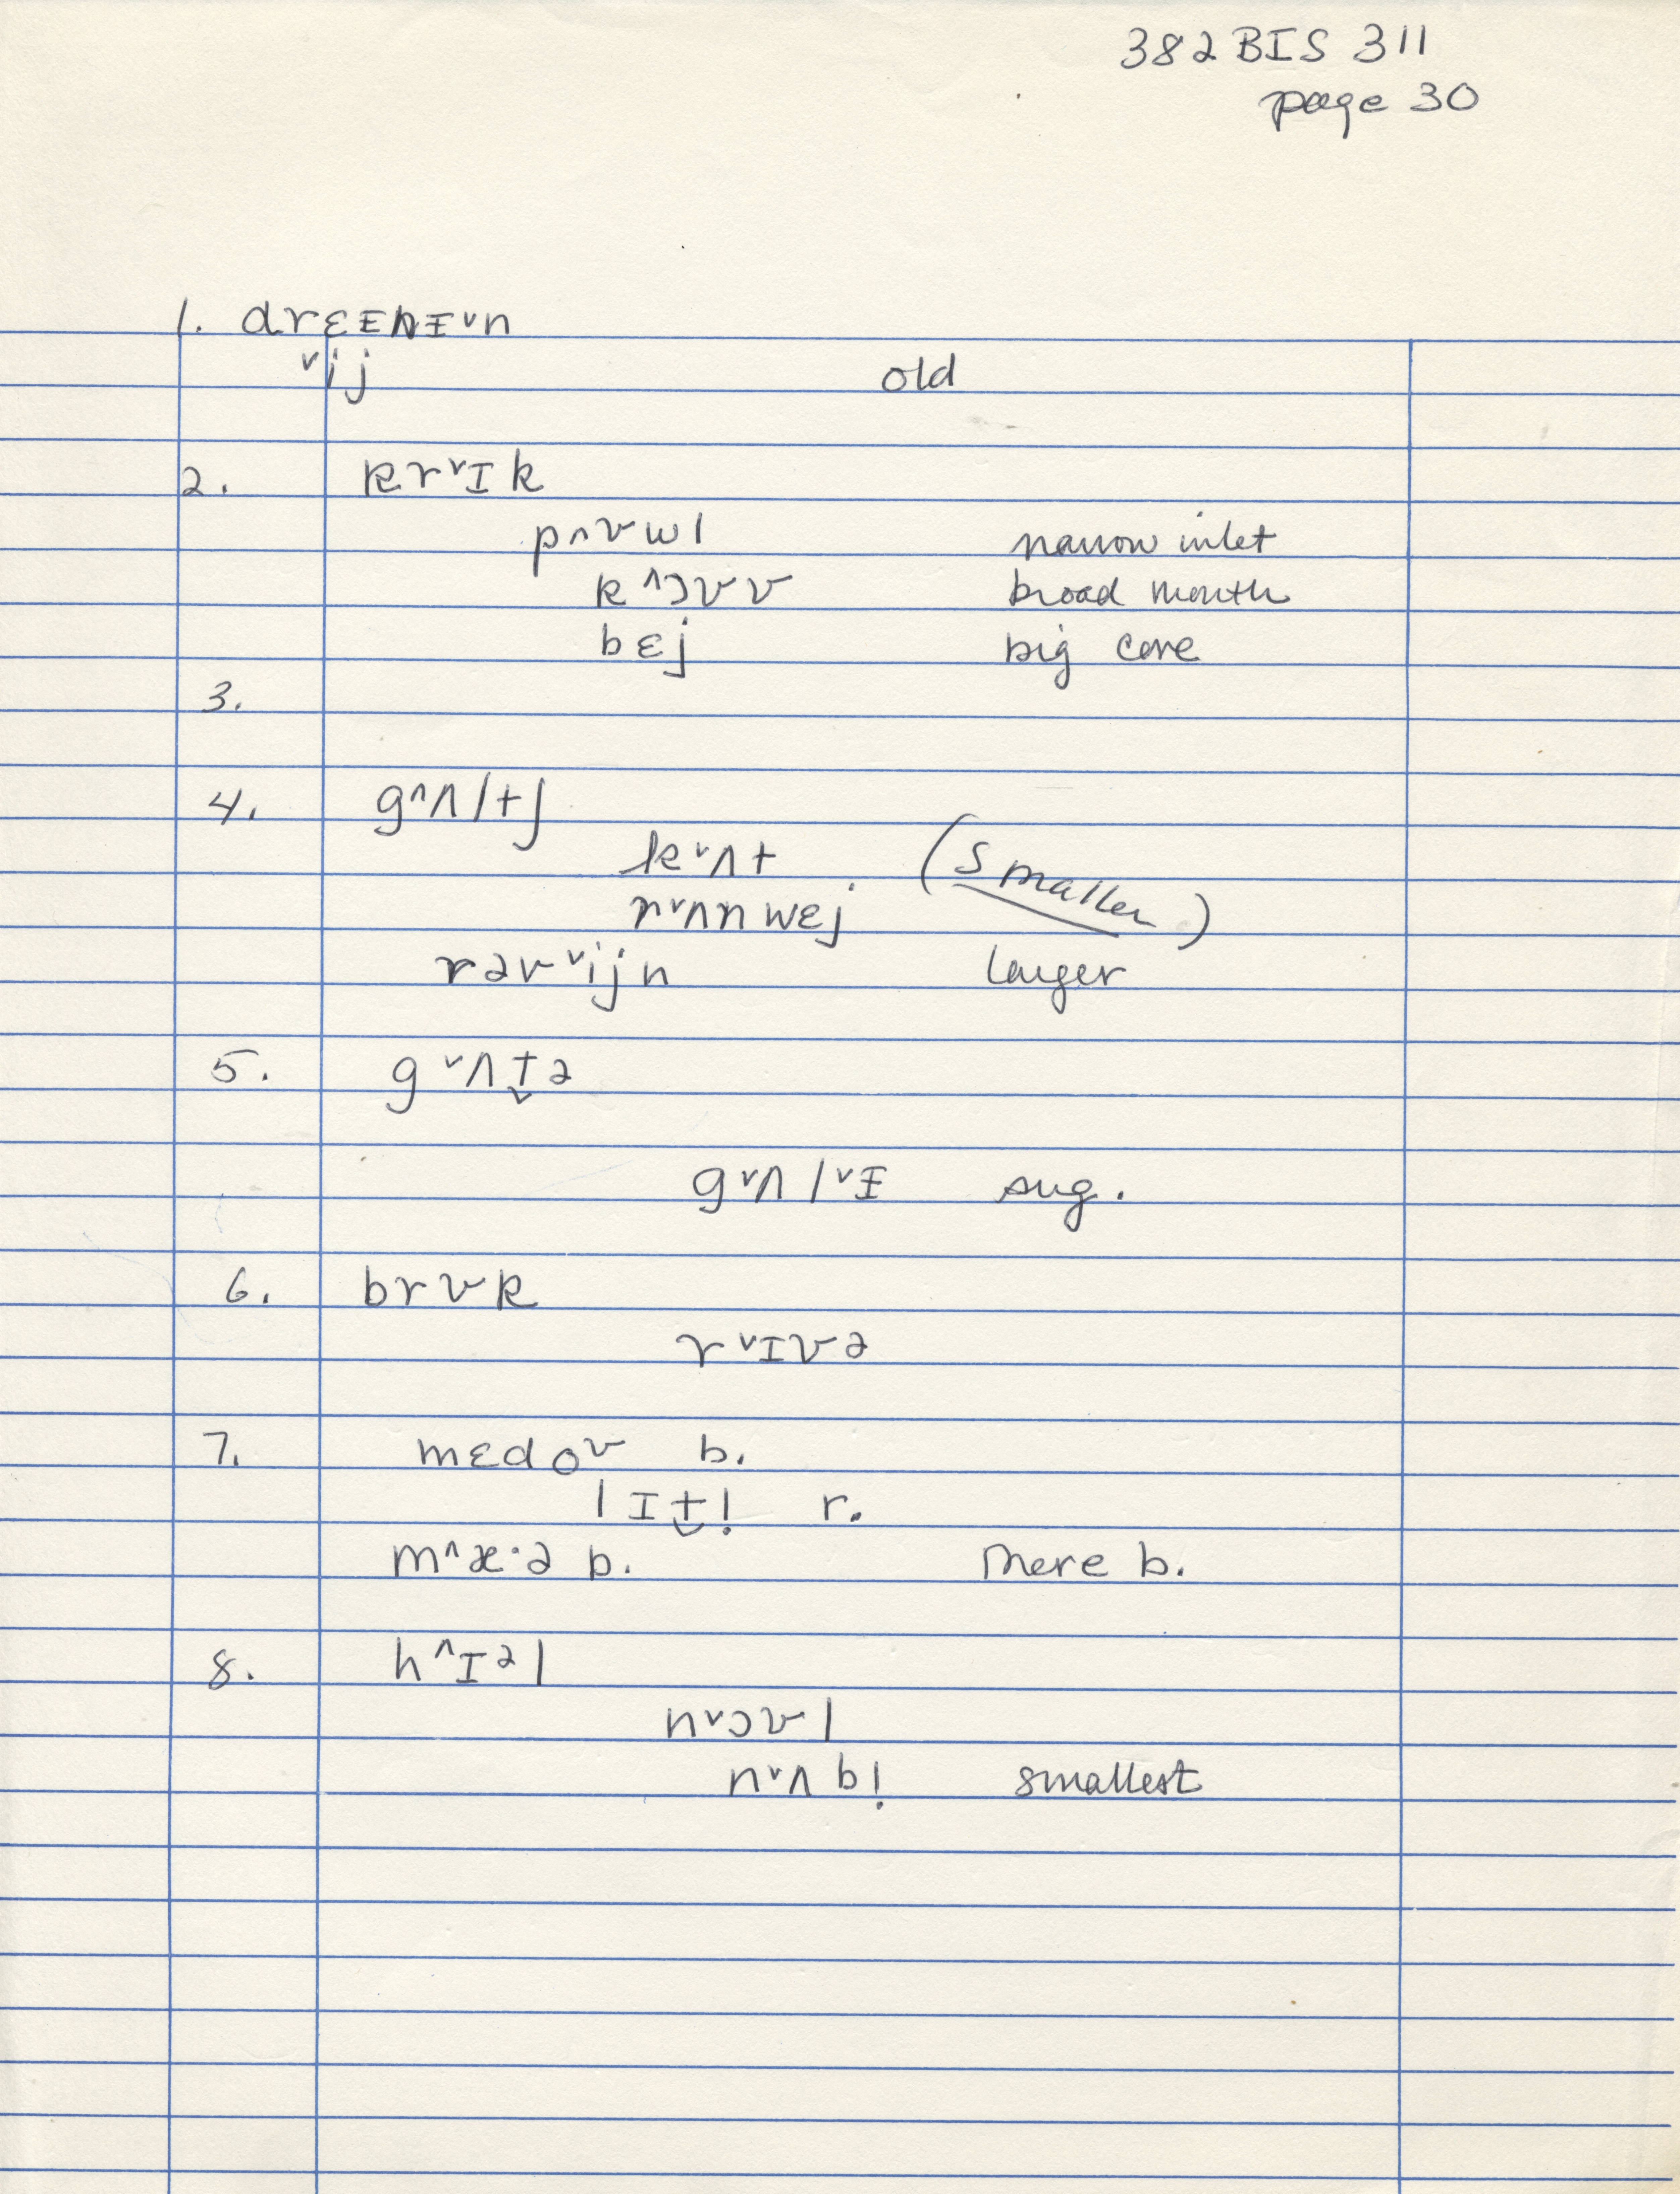 382 BIS 311
page 30
1. drɛɪnɪᵛn
ᵛij old
2. krᵛɪk
pʌʊwl narrow inlet
k^ɔʊʊ broad mouth
bɛj big cove
3.
4. g^ʌltʃ
kᵛʌt (smaller)
rᵛʌnnwɛj
rəvᵛijn larger
5. gᵛʌt̬ə
gᵛʌlᵛɪ sug.
6. brʊk
rᵛɪvə
7. mɛdoʊ b.
lɪt̬l̩ r.
m^æ·ə b. mere b.
8. h^ɪəl
nᵛɔʊl
nᵛʌbl̩ smallest